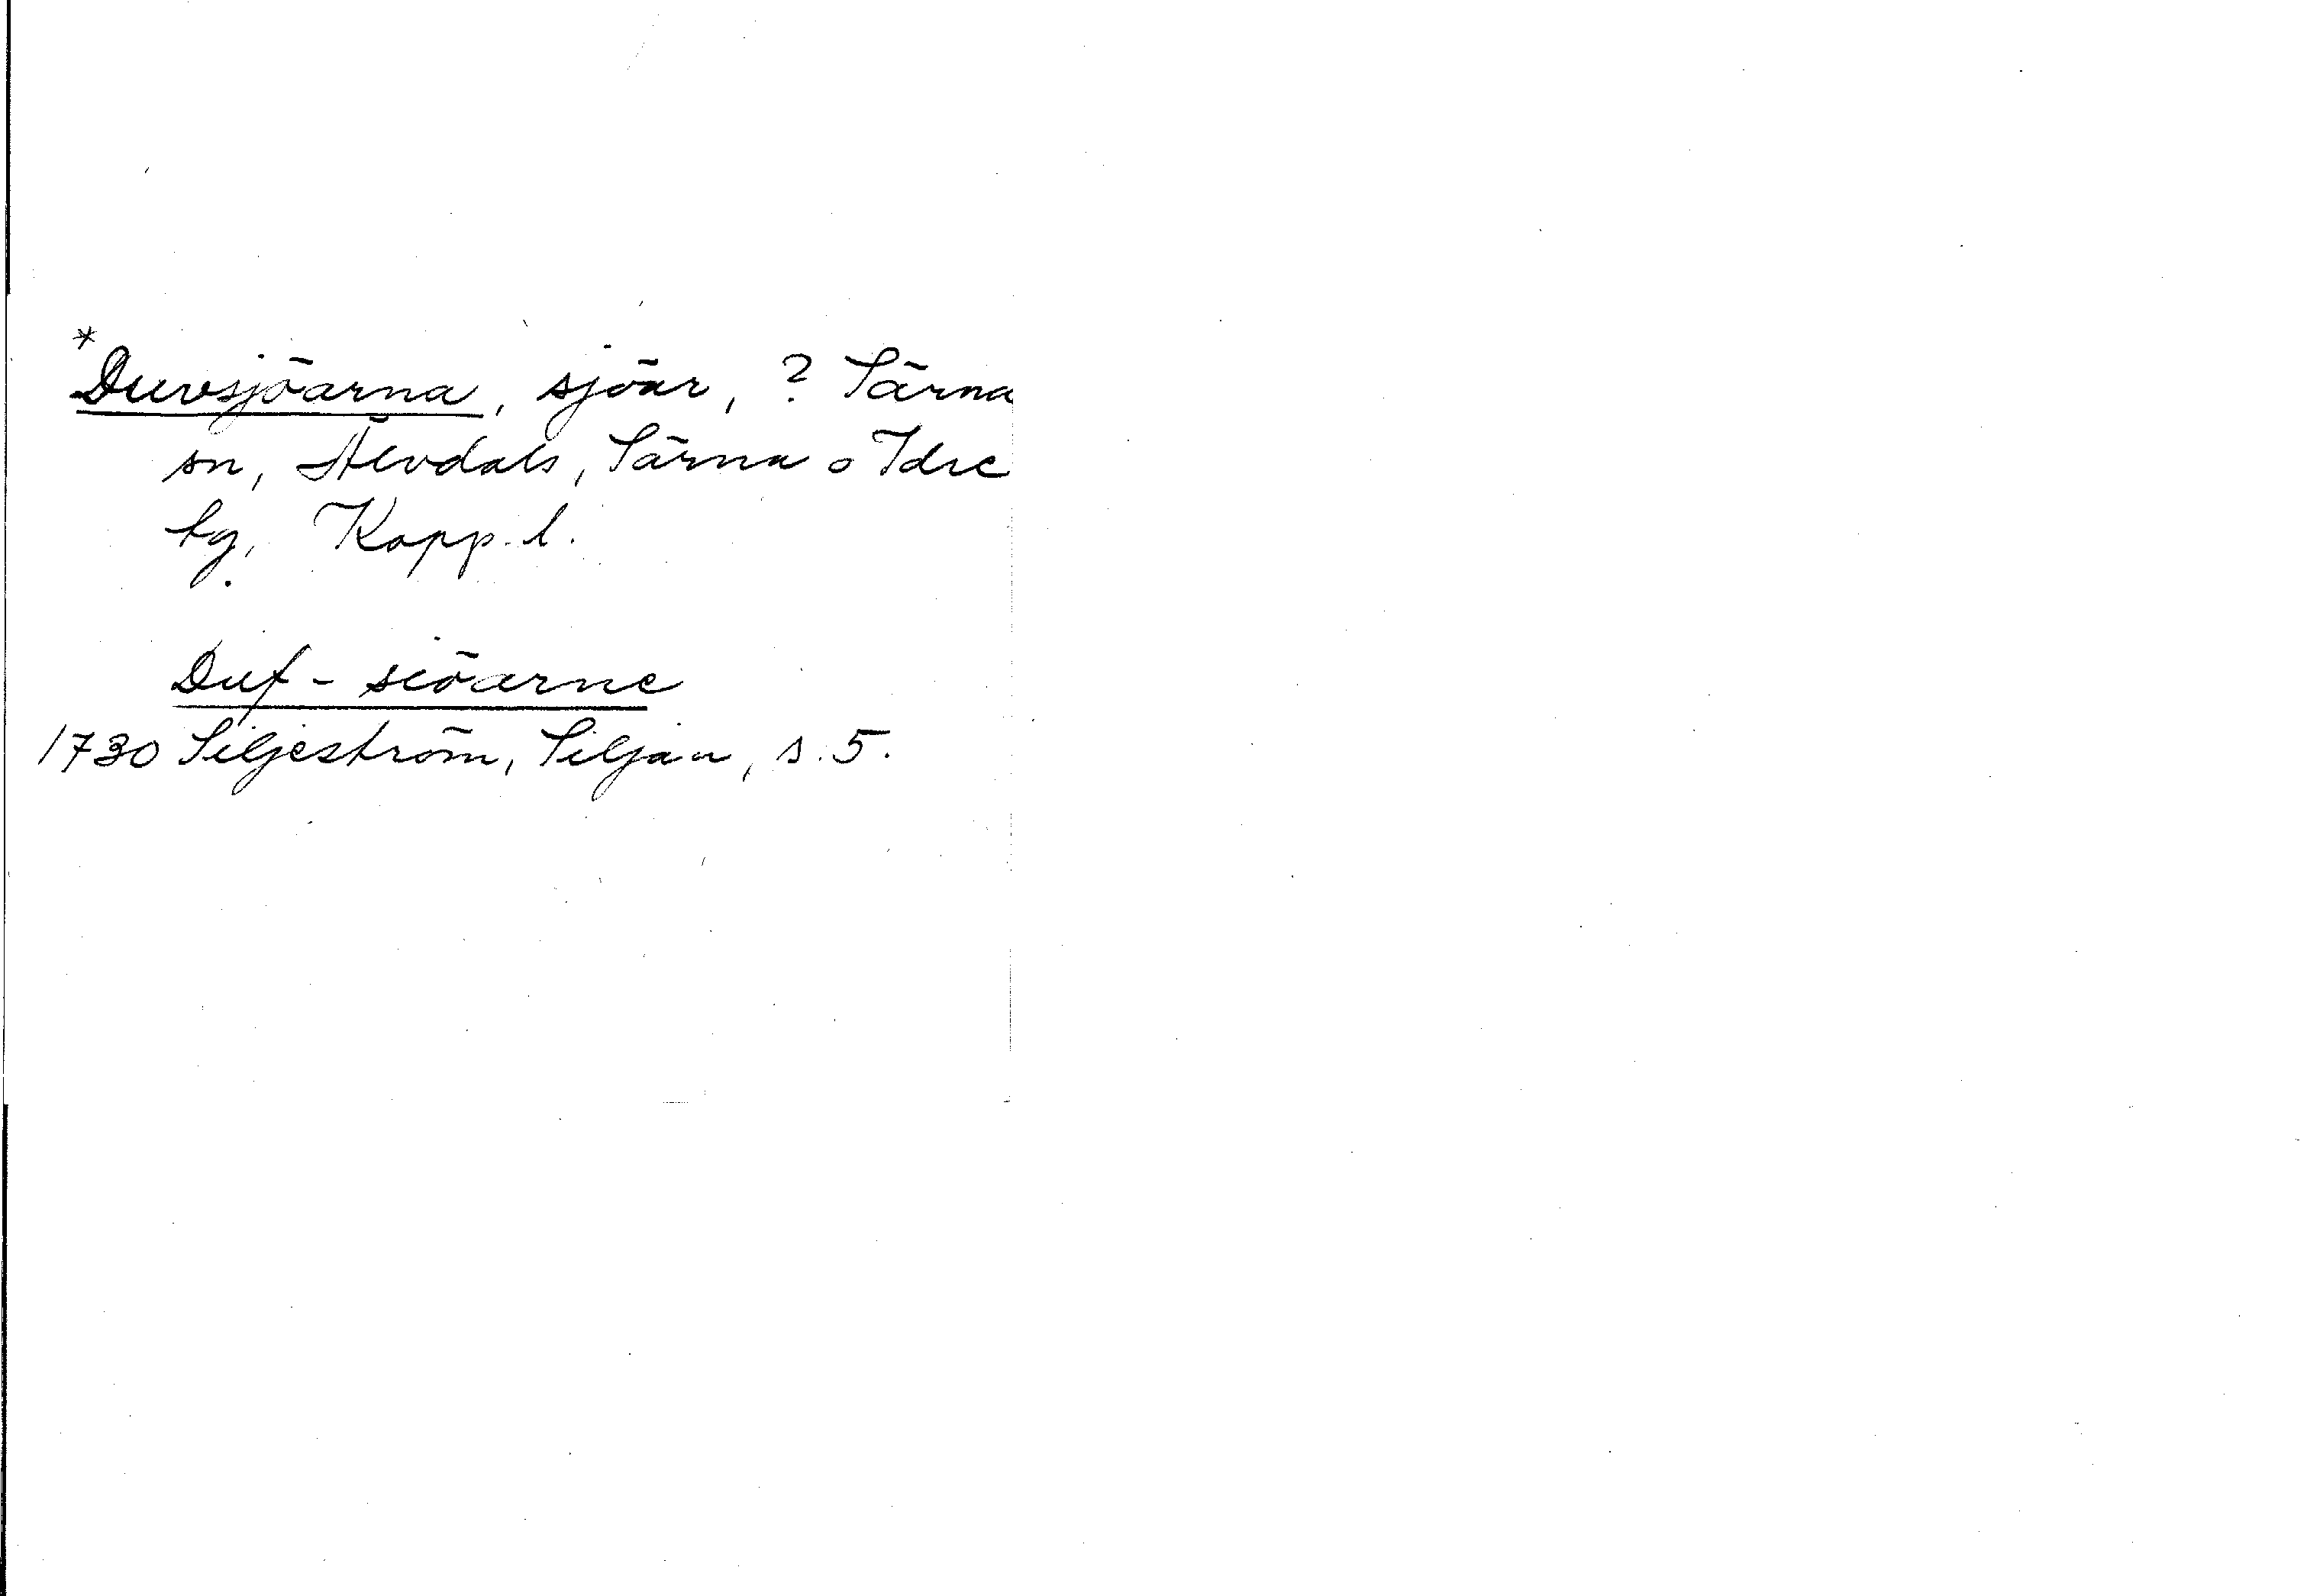 *Duvsjöarna, sjöar, ? Särna
sn, Älvdals, Särna o Idre
tg, Kopp. l.
Duf - siöarne
1730 Siljeström, Siljan, s. 5.